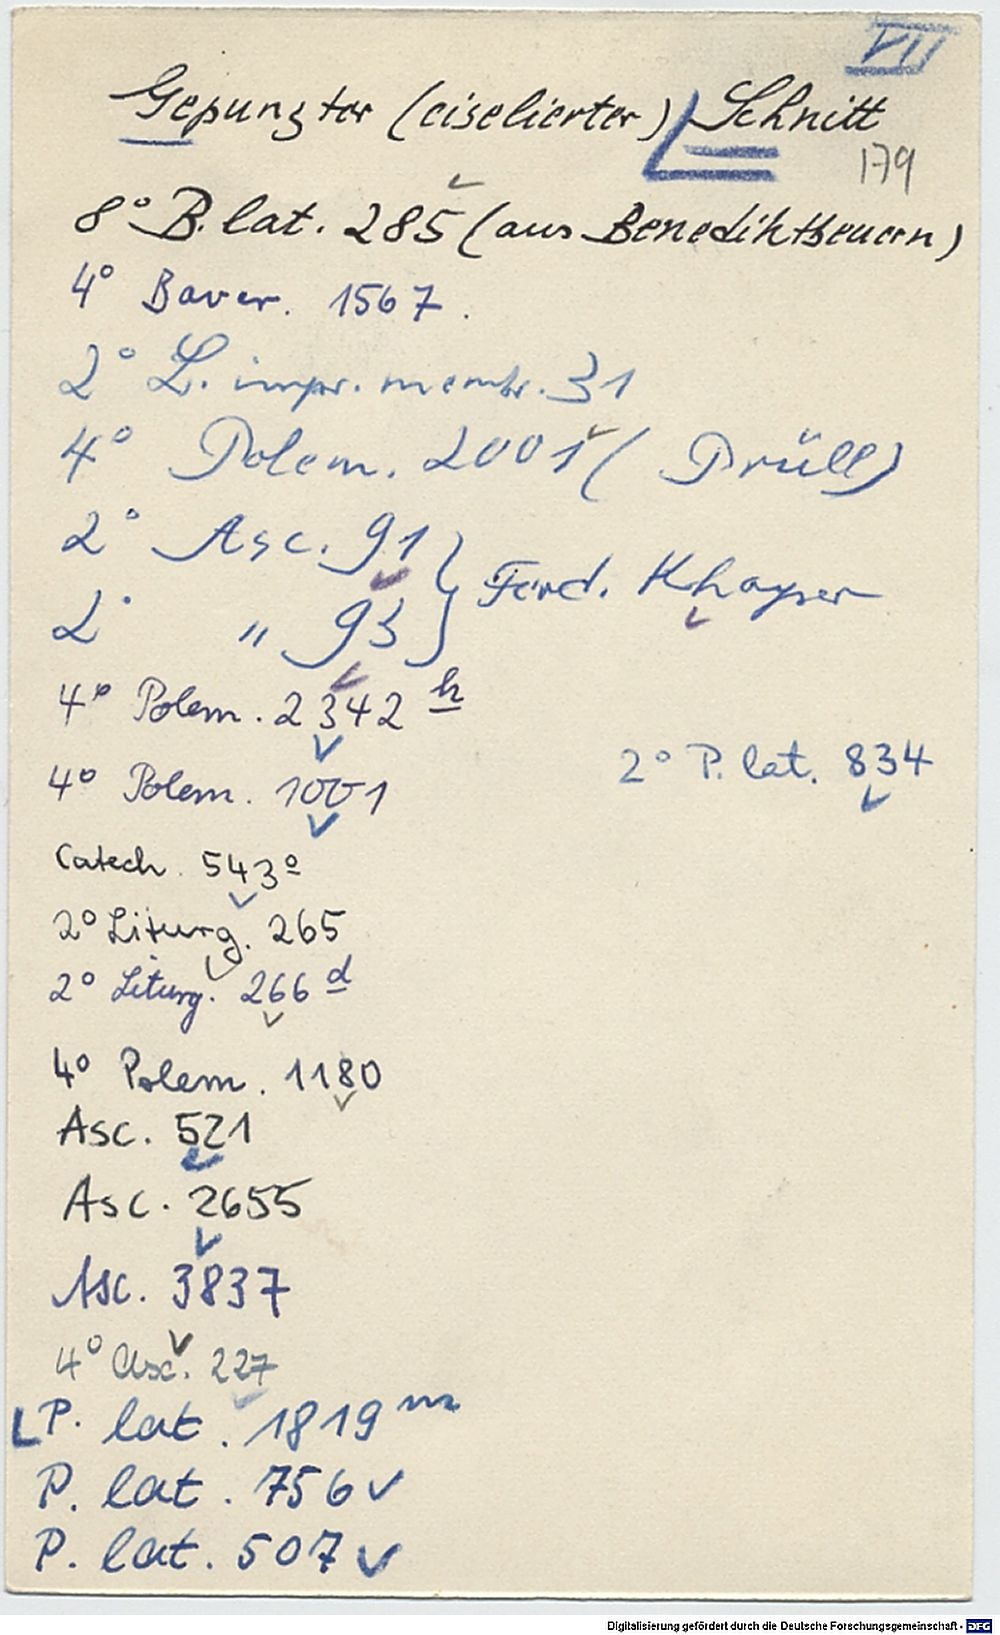 VII
Gepunzter (ciselierter) Schnitt
179
8° B. lat. 285 (aus Benediktbeuern)
4° Bavar. 1567.
2° L. impr. membr. 31
4° Polem. 2001 (Prüll)
2° Asc. 91 } Ferd. Khayser
2° " 93
4° Polem. 2342 h
2° P. lat. 834
4° Polem. 1001
Catech. 543°
2° Liturg. 265
2° Liturg. 266 d
4° Polem. 1180
Asc. 521
Asc. 2655
Asc. 3837
4° Asc. 227
P. lat. 1819 m
P. lat. 756
P. lat. 507
Digitalisierung gefördert durch die Deutsche Forschungsgemeinschaft - DFG